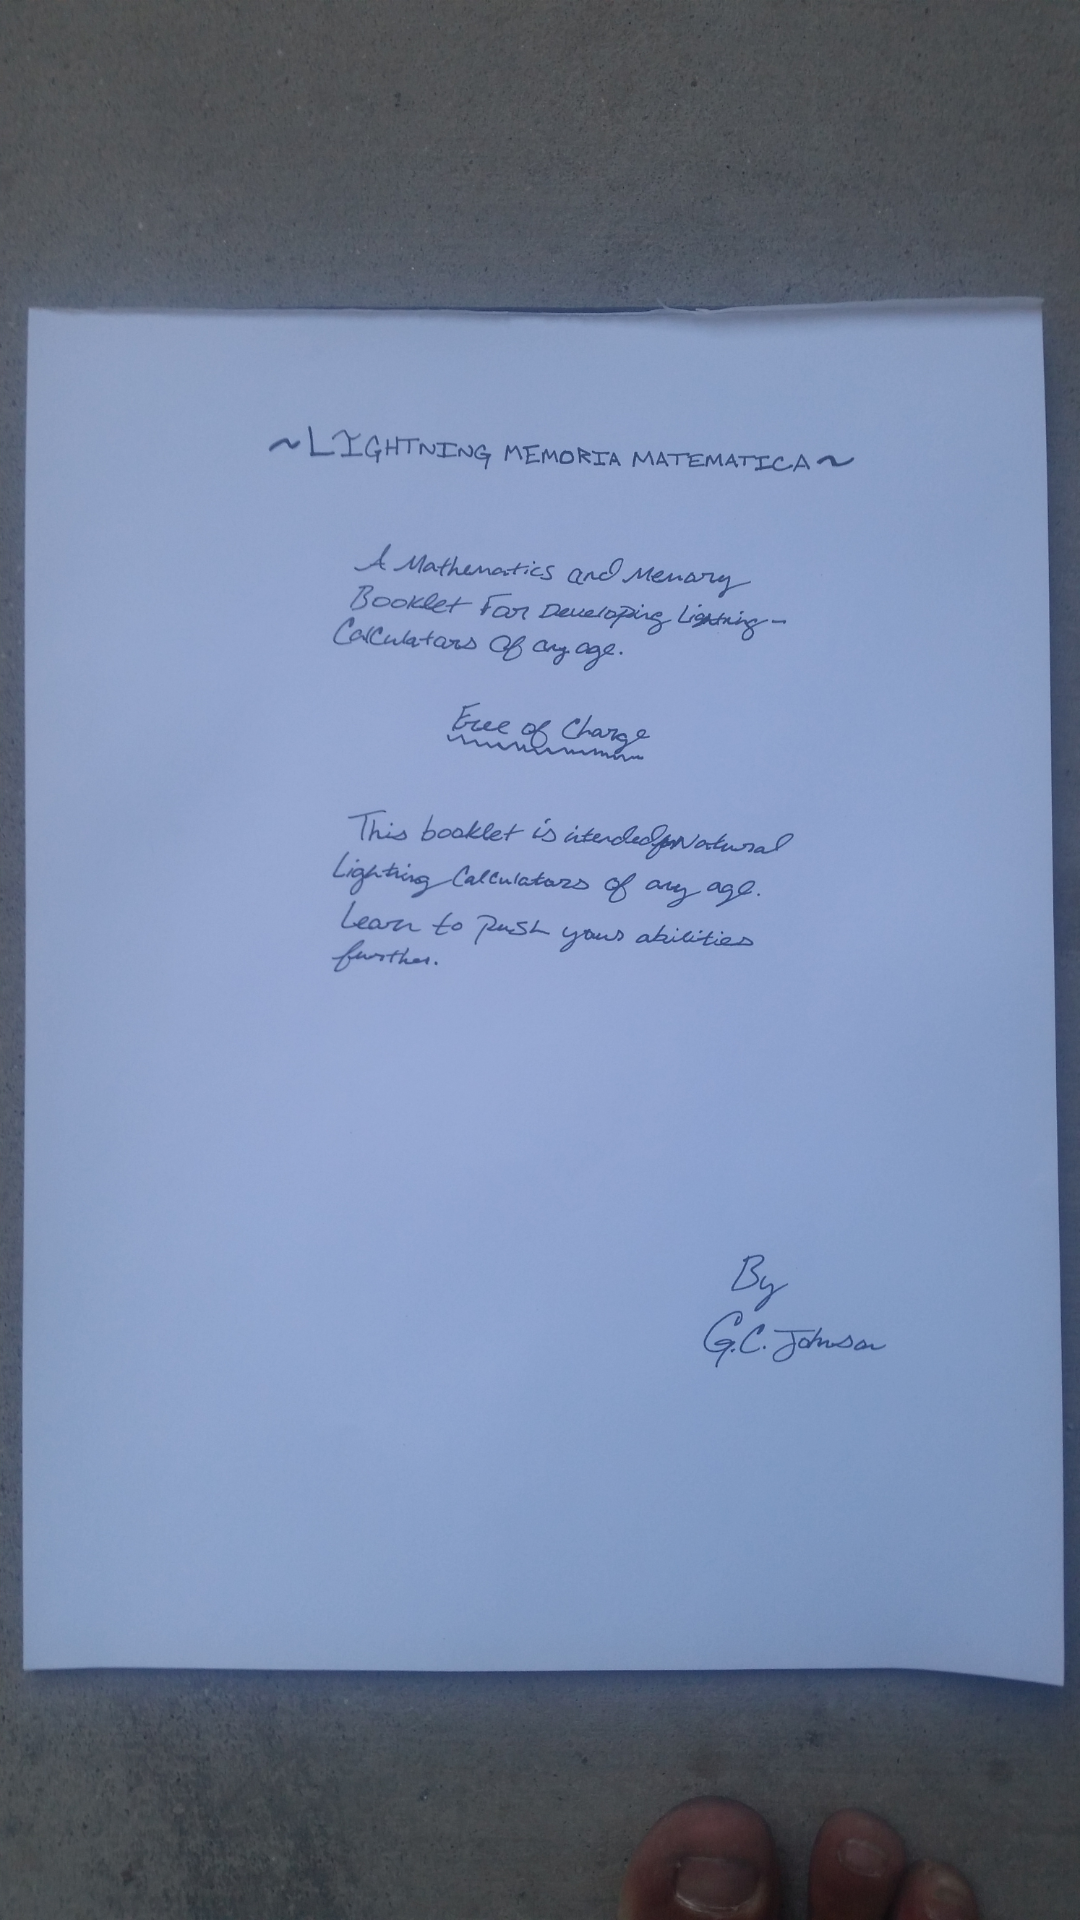 ~LIGHTNING MEMORIA MATEMATICA~
A Mathematics and Memory
Booklet For Developing Lightning-
Calculators Of any age.
Free of Charge
This booklet is intended for Natural
Lighting Calculators of any age.
Learn to push your abilities
further.
By
G.C. Johnson